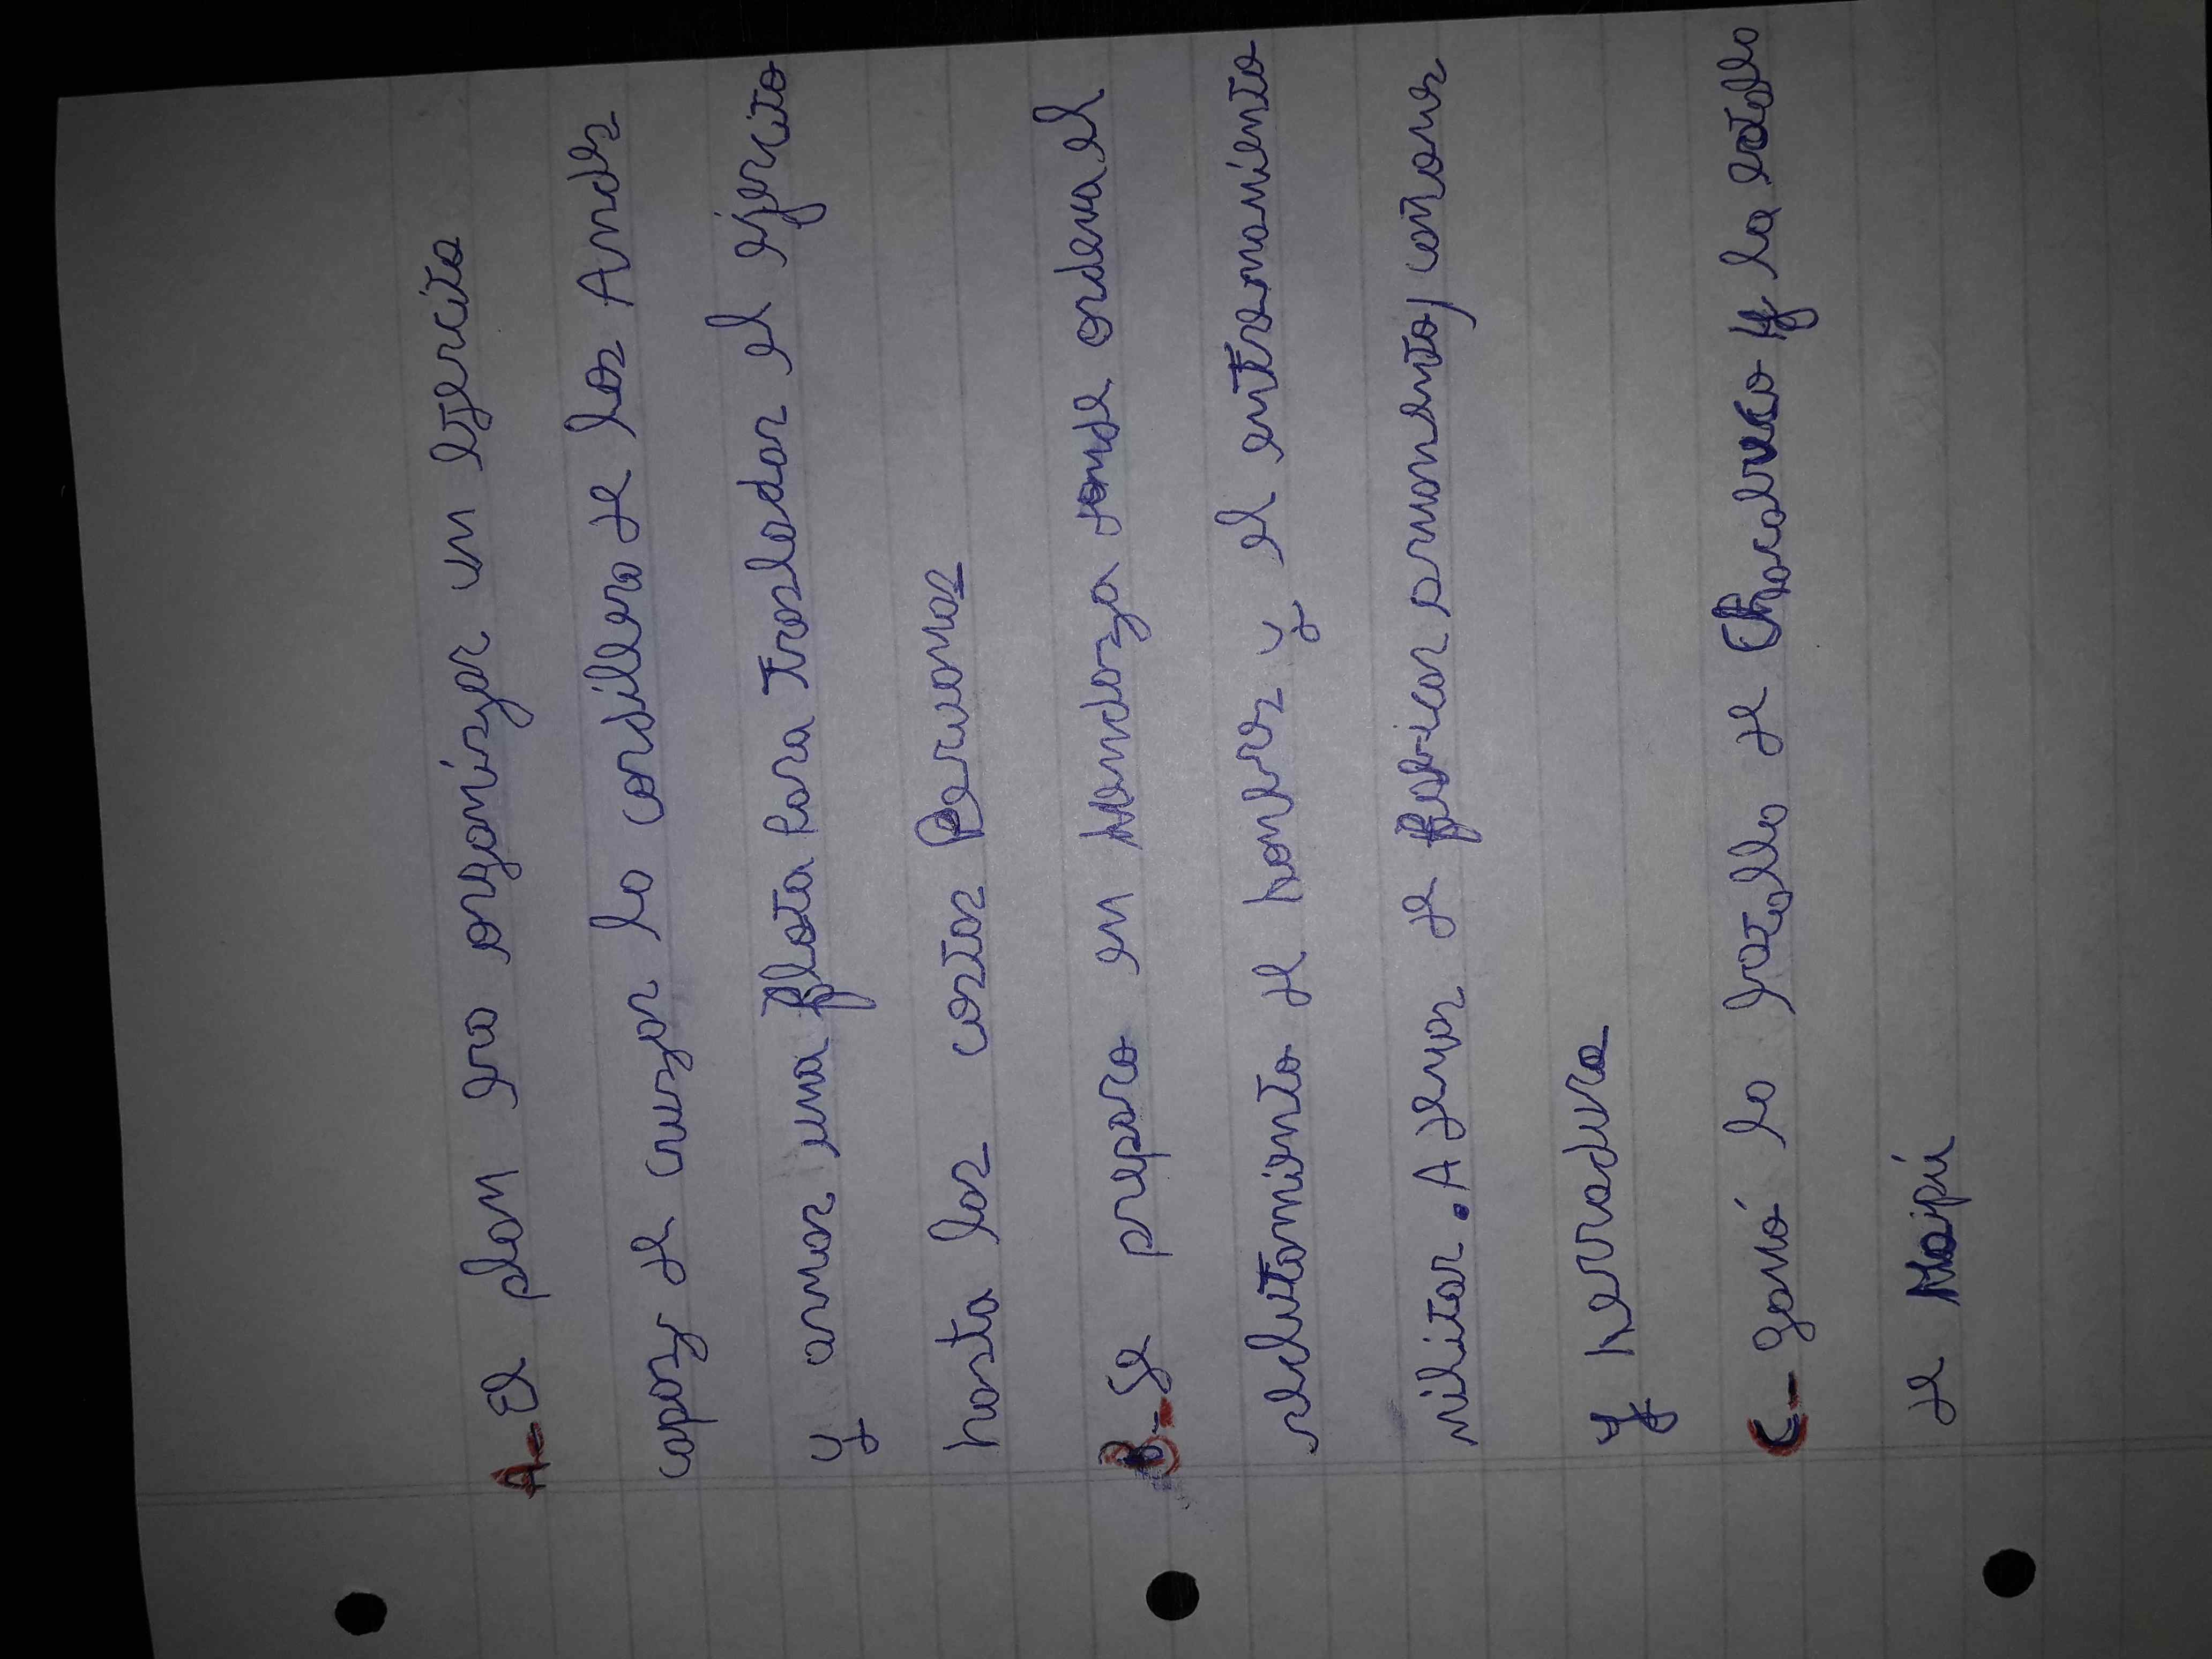 A- El plan era organizar un ejercito
capaz de cruzar la cordillera de los Andes
y armar una flota Para Trasladar el ejercito
hasta las costas Peruanas
B- Se preparo en Mendoza donde ordena el
reclutamiento de hombres y el entrenamiento
militar. Ademas de fabricar armamento, cañones
y herradura
C- ganó la batalla de Chacabuco y la batalla
de Maipú